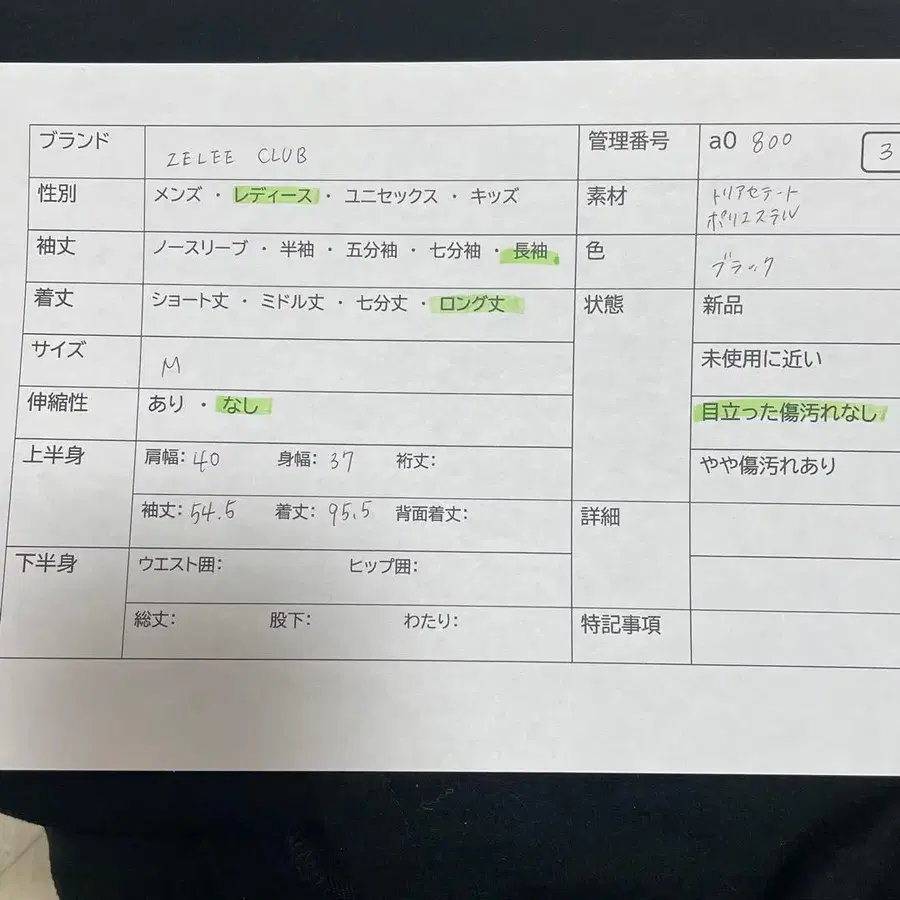 ブランド ZELEE CLUB 管理番号 a0 800 3
性別 メンズ ・ レディース ・ ユニセックス ・ キッズ 素材 トリアセテート
ポリエステル
袖丈 ノースリーブ ・ 半袖 ・ 五分袖 ・ 七分袖 ・ 長袖 色 ブラック
着丈 ショート丈 ・ ミドル丈 ・ 七分丈 ・ ロング丈 状態 新品
サイズ M 未使用に近い
伸縮性 あり ・ なし 目立った傷汚れなし
上半身 肩幅: 40 身幅: 37 裄丈: やや傷汚れあり
袖丈: 54.5 着丈: 95.5 背面着丈: 詳細
下半身 ウエスト囲: ヒップ囲:
総丈: 股下: わたり: 特記事項